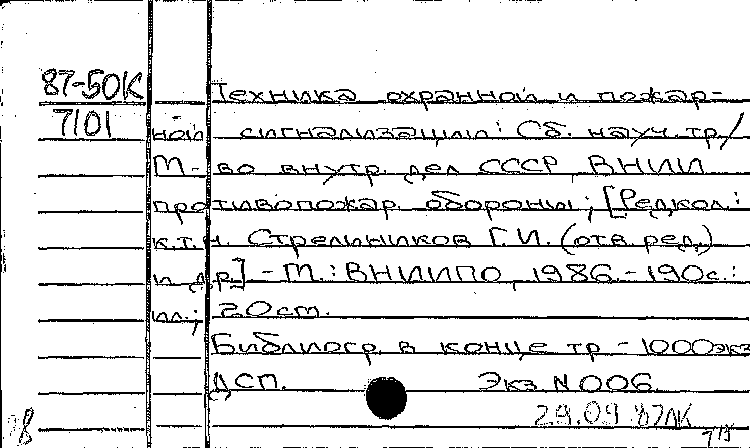 87-50К
7101
Техника охранной и пожар-
ной сигнализации: Сб. науч. тр/
М-во внутр. дел СССР, ВНИИ
противопожар. обороны; [Редкол.:
к.т.н. Стрельников Г.И. (отв. ред.)
и др.] - М.: ВНИИПО, 1986.-190с.:
ил.; 20см.
Библиогр. в конце тр - 1000экз
ДСП. Экз N 006.
29.09.87ЛК